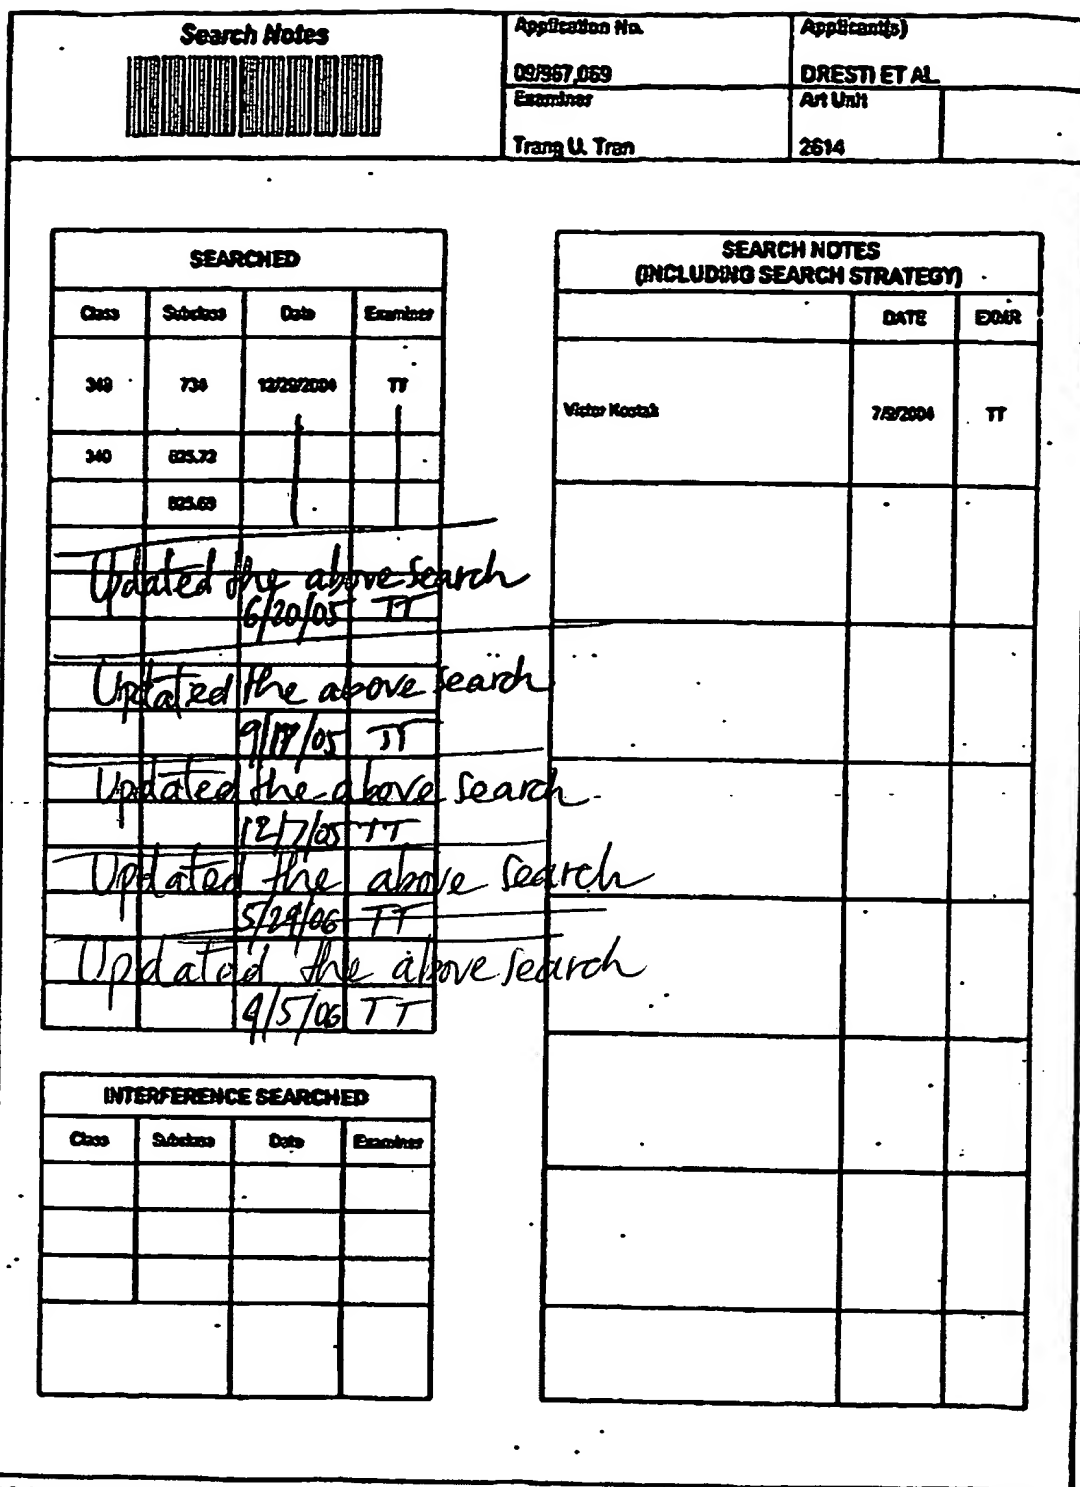 Search Notes
Application No.
Applicant(s)
09/967,069
DRESTI ET AL.
Examiner
Art Unit
Trang U. Tran
2614
SEARCHED
Class Subclass Date Examiner
348 734 12/29/2004 TT
340 825.72
825.69
Updated the above search
6/20/05 TT
Updated the above search
TT
Updated the above search
12/7/05 TT
Updated the above search
TT
Updated the above search
TT
INTERFERENCE SEARCHED
Class Subclass Date Examiner
SEARCH NOTES
(INCLUDING SEARCH STRATEGY)
DATE EXMR
Victor Kostak 7/9/2004 TT